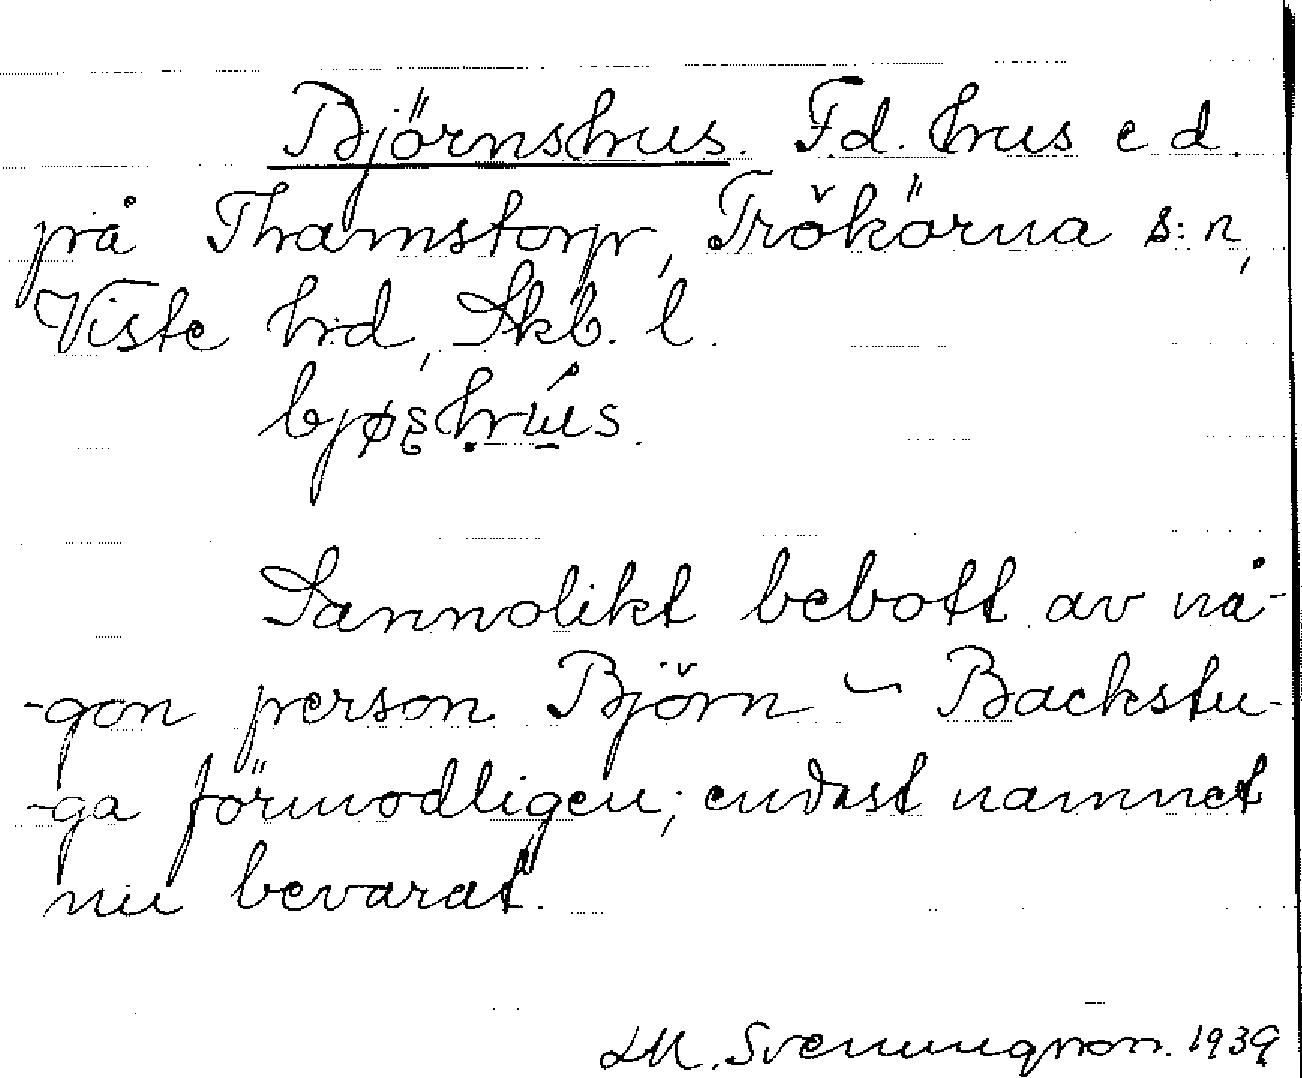 Björnshus. F.d. hus e d.
på Thamstorp, Trökörna s:n,
Viste hd, Skb. l.
bjøʂhús.
Sannolikt bebott av nå-
-gon person Björn – Backstu-
-ga förmodligen; endast namnet
nu bevarat.
Svenungsson. 1939